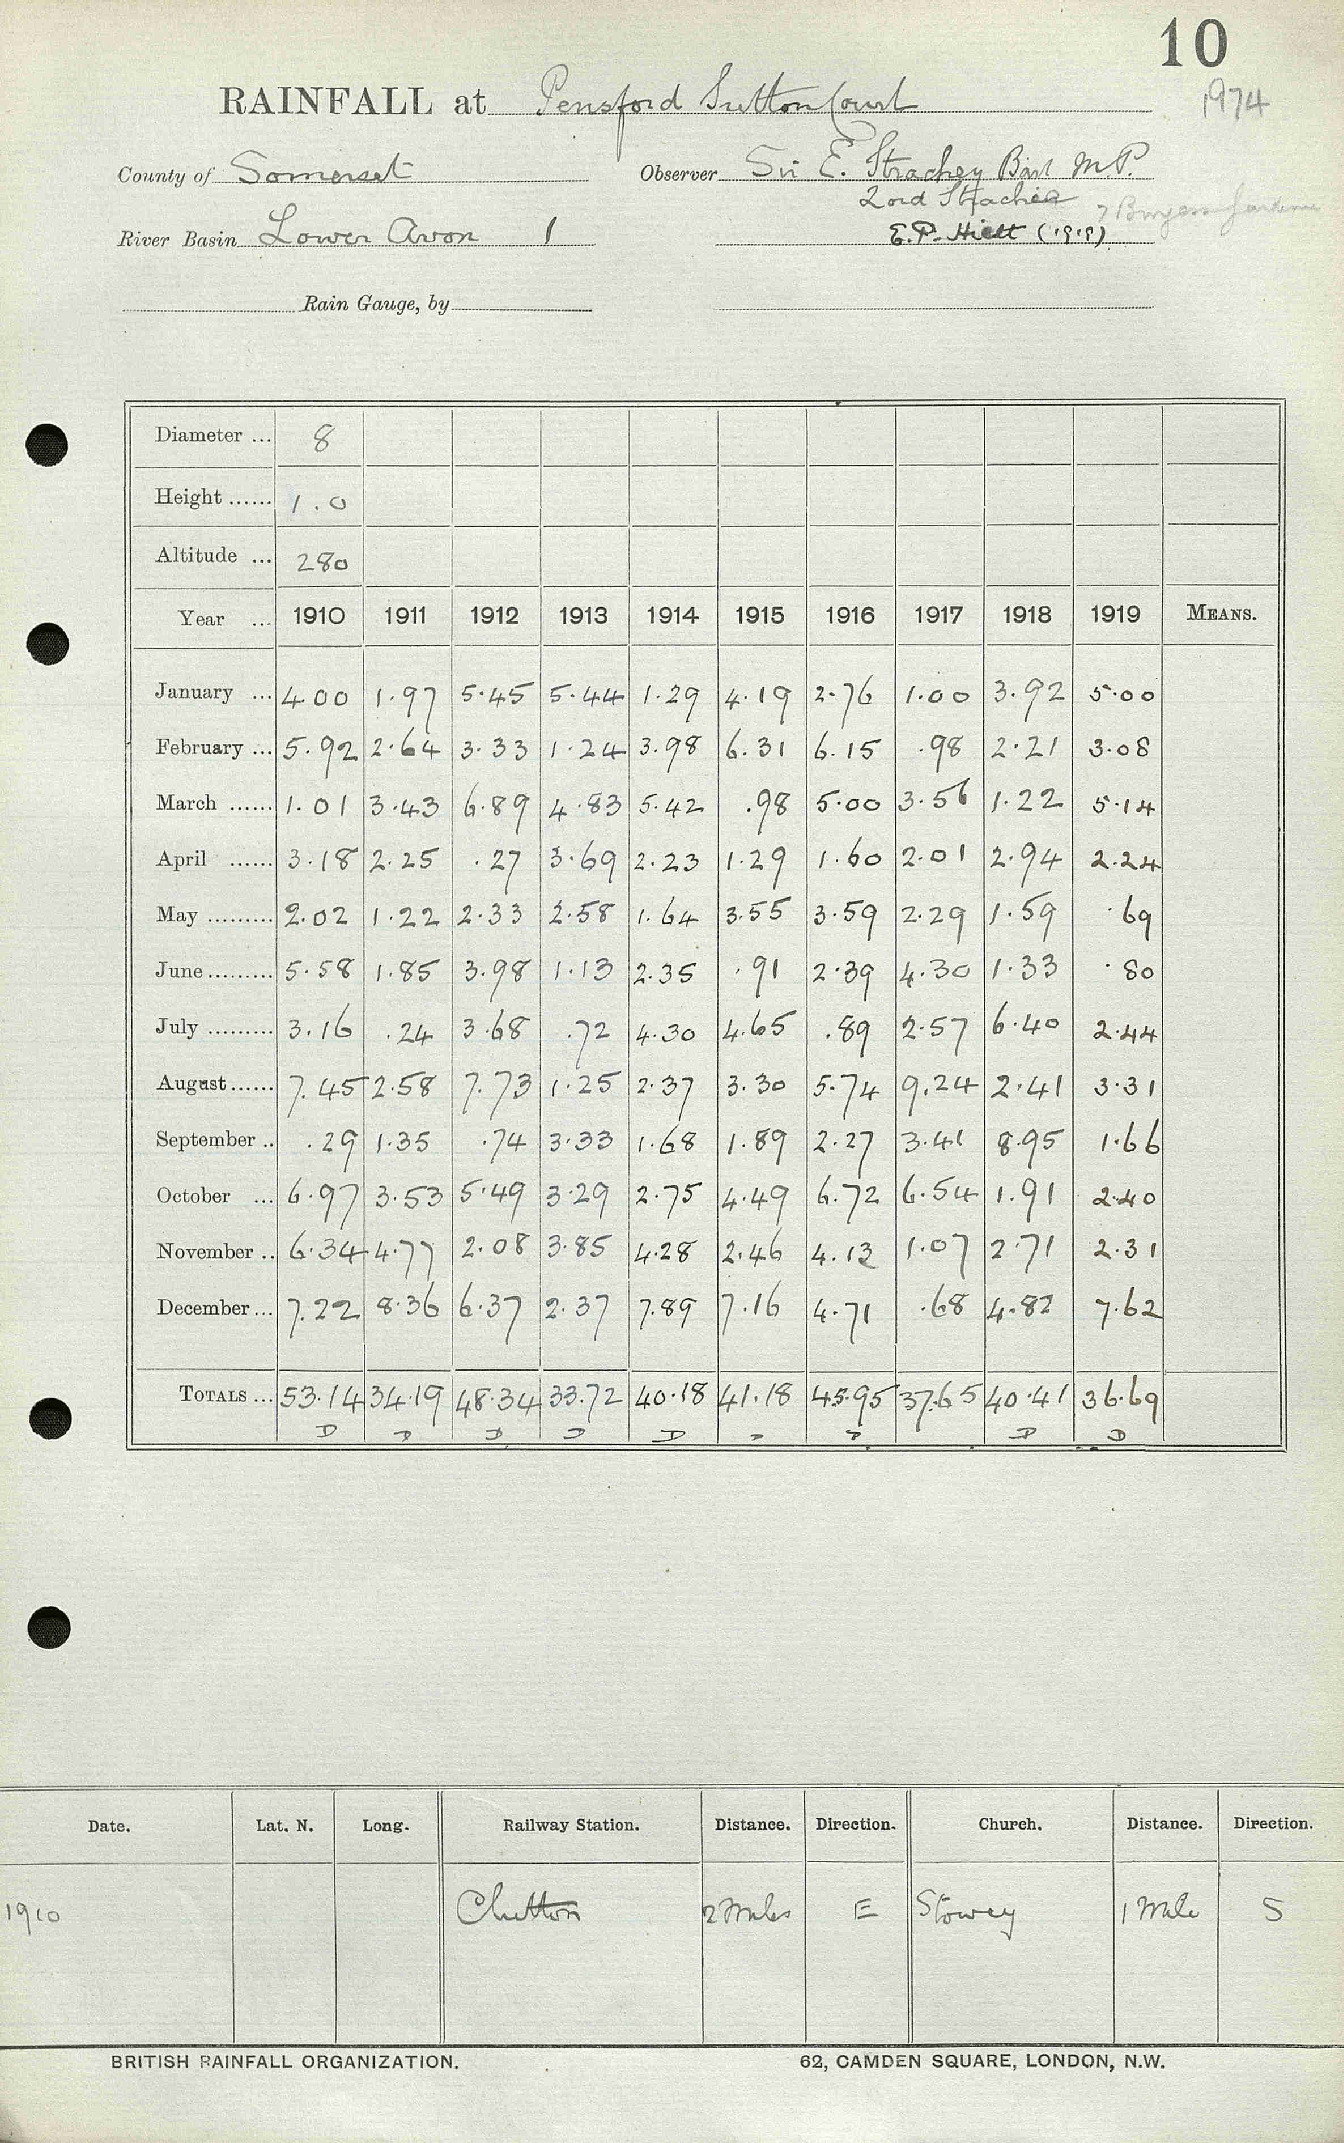 10
RAINFALL at Pensford Sutton Court 1974
County of Somerset Observer Sir E. Strachey Bart M.P.
2 Lord Strachie
River Basin Lower Avon 1 E.P. Hiett (1919)
Rain Gauge, by
Diameter ... 8
Height ...... 1.0
Altitude ... 280
Year ... 1910 1911 1912 1913 1914 1915 1916 1917 1918 1919 MEANS.
January ... 4.00 1.97 5.45 5.44 1.29 4.19 2.76 1.00 3.92 5.00
February ... 5.92 2.64 3.33 1.24 3.98 6.31 6.15 .98 2.21 3.08
March ...... 1.01 3.43 6.89 4.83 5.42 .98 5.00 3.56 1.22 5.14
April ...... 3.18 2.25 .27 3.69 2.23 1.29 1.60 2.01 2.94 2.24
May ......... 2.02 1.22 2.33 2.58 1.64 3.55 3.59 2.29 1.59 .69
June ......... 5.58 1.85 3.98 1.13 2.35 .91 2.39 4.30 1.33 .80
July ......... 3.16 .24 3.68 .72 4.30 4.65 .89 2.57 6.40 2.44
August ...... 7.45 2.58 7.73 1.25 2.37 3.30 5.74 9.24 2.41 3.31
September .. .29 1.35 .74 3.33 1.68 1.89 2.27 3.41 8.95 1.66
October ... 6.97 3.53 5.49 3.29 2.75 4.49 6.72 6.54 1.91 2.40
November .. 6.34 4.77 2.08 3.85 4.28 2.46 4.13 1.07 2.71 2.31
December ... 7.22 8.36 6.37 2.37 7.89 7.16 4.71 .68 4.82 7.62
TOTALS ... 53.14 34.19 48.34 33.72 40.18 41.18 45.95 37.65 40.41 36.69
D D D D D D D D D
Date. Lat. N. Long. Railway Station. Distance. Direction. Church. Distance. Direction.
1910 Clutton 2 Miles E Stowey 1 Mile S
BRITISH RAINFALL ORGANIZATION. 62, CAMDEN SQUARE, LONDON, N.W.